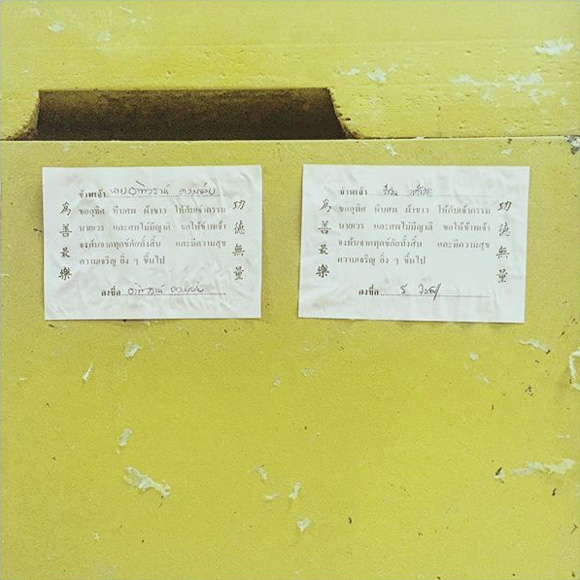 ข้าพเจ้า
ขออุทิศ หีบศพ ผ้าขาว ให้กับเจ้ากรรม
นายเวร และศพไม่มีญาติ ขอให้ข้าพเจ้า
จงพ้นจากทุกข์ภัยทั้งสิ้น และมีความสุข
ความเจริญ ยิ่ง ๆ ขึ้นไป
ลงชื่อ
為善最樂
功德無量
ข้าพเจ้า
ขออุทิศ หีบศพ ผ้าขาว ให้กับเจ้ากรรม
นายเวร และศพไม่มีญาติ ขอให้ข้าพเจ้า
จงพ้นจากทุกข์ภัยทั้งสิ้น และมีความสุข
ความเจริญ ยิ่ง ๆ ขึ้นไป
ลงชื่อ
為善最樂
功德無量